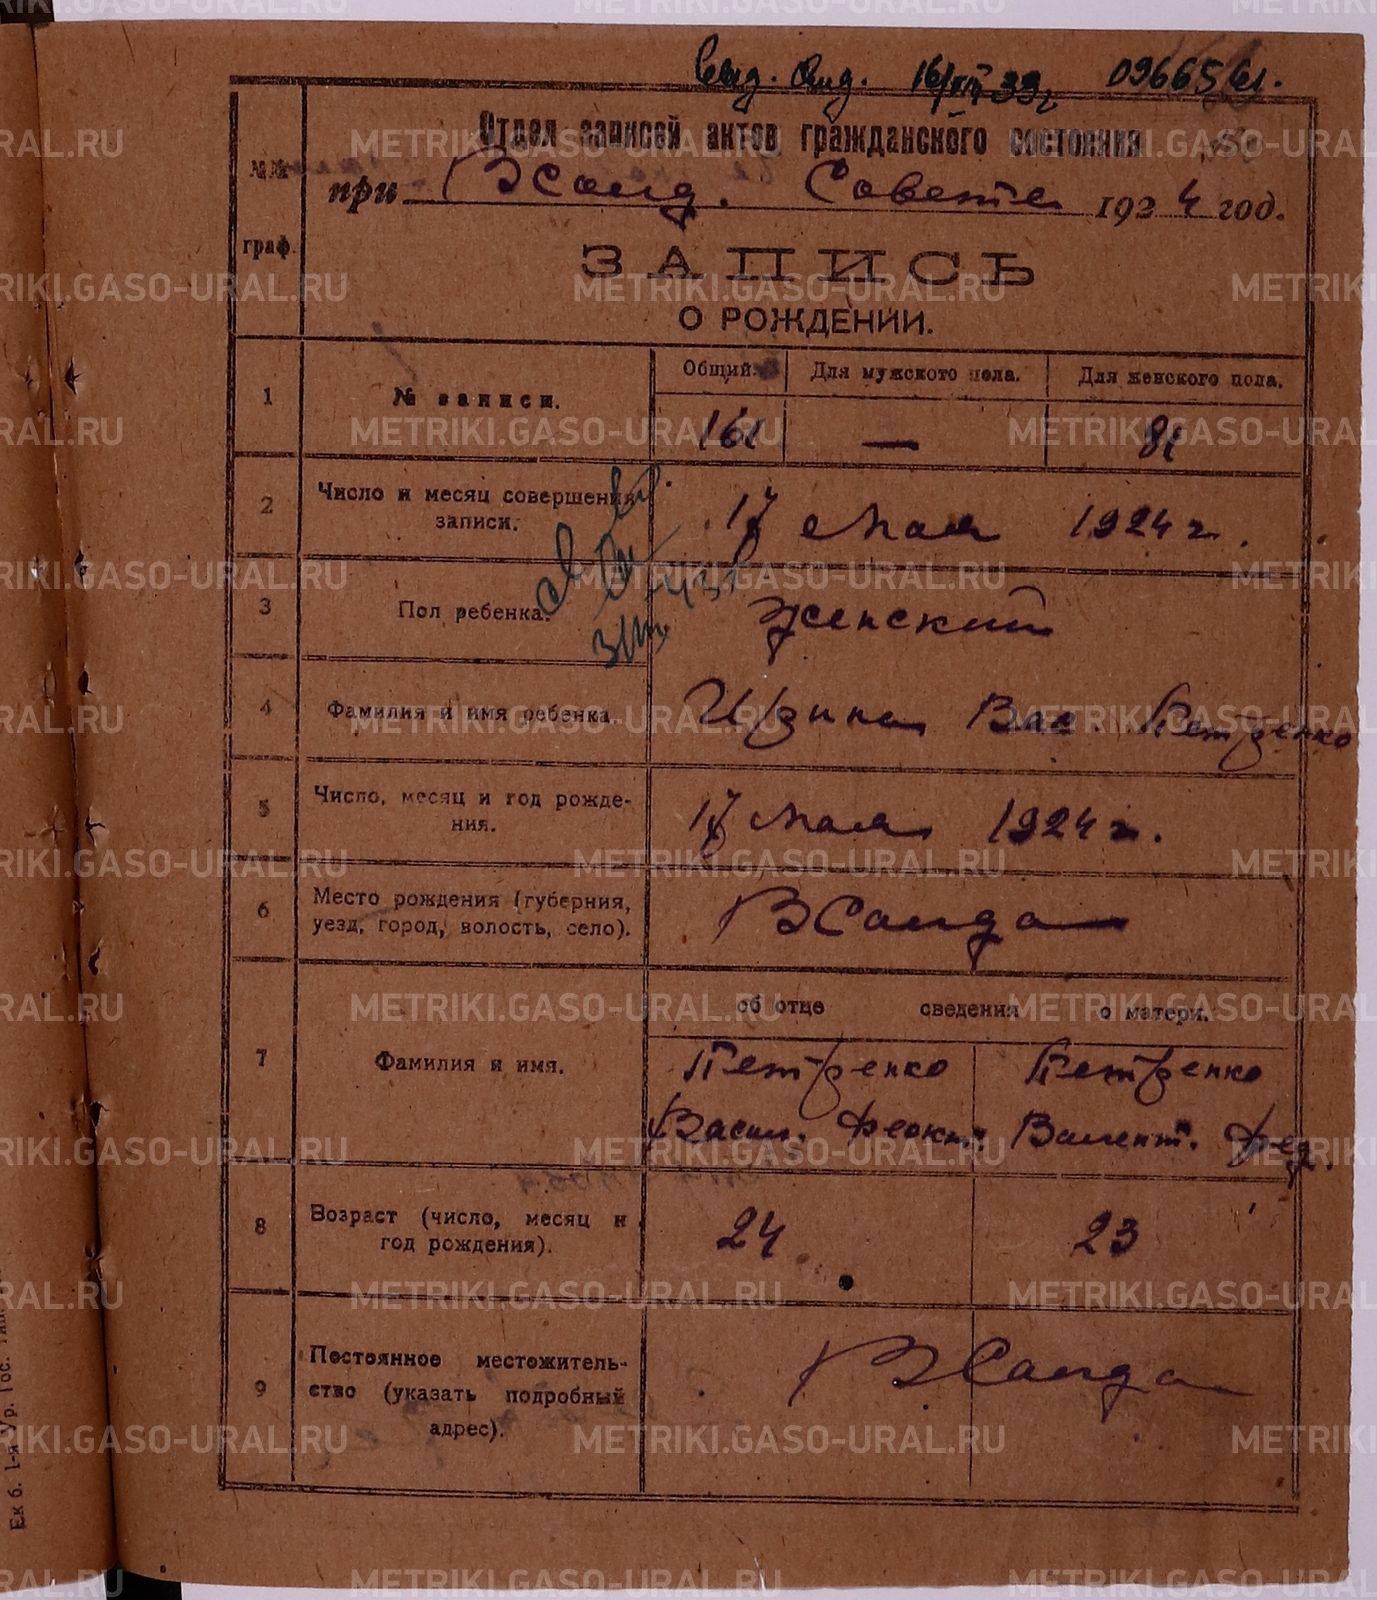 Выд. 16/VII 39 г
Отдел записей актов гражданского состояния
№№ граф.
при ВСалд. Совете 1924 год.
ЗАПИСЬ
О РОЖДЕНИИ.
1 № записи. Общий. Для мужского пола. Для женского пола.
161 — 81
2 Число и месяц совершения записи. 17 Мая 1924 г.
3 Пол ребенка. Женский
4 Фамилия и имя ребенка. Ирина Вас. Петренко
5 Число, месяц и год рождения. 17 Мая 1924 г.
6 Место рождения (губерния, уезд, город, волость, село). ВСалда
об отце сведения о матери.
7 Фамилия и имя. Петренко Петренко
Васил. Феокт. Валент. Фед.
8 Возраст (число, месяц и год рождения). 24 23
9 Постоянное местожительство (указать подробный адрес). ВСалда
METRIKI.GASO-URAL.RU